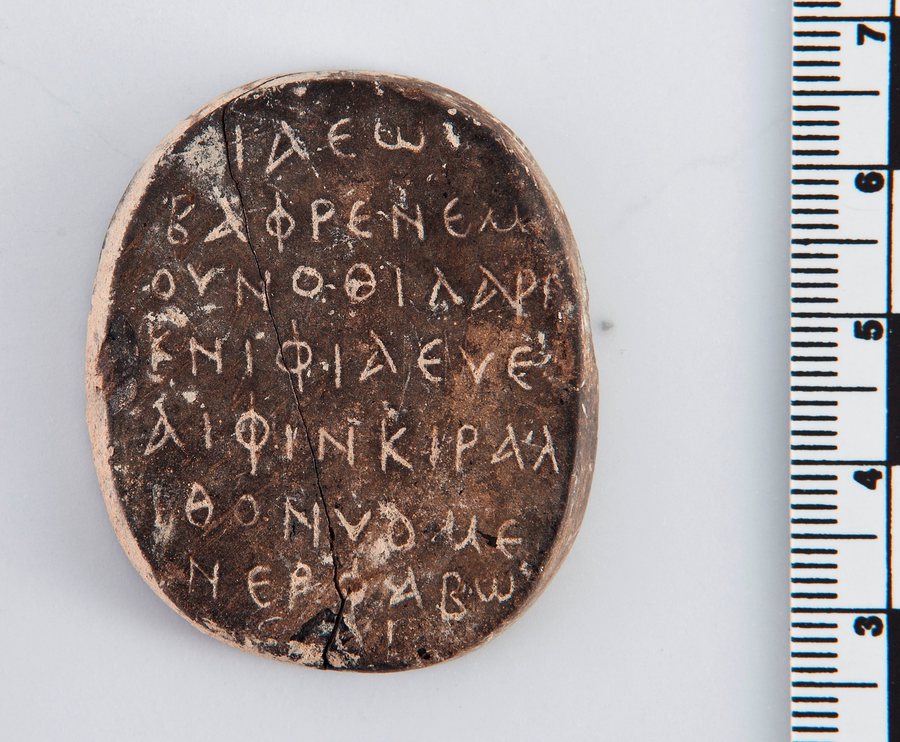 ΙΑΕω
ΒΑΦΡΕΝΕΜ
ΟΥΝΟΘΙΛΑΡΙ
ΚΝΙΦΙΑΕΥΕ
ΑΙΦΙΝΚΙΡΑΛ
ΙΘΟΝΥΟΜΕ
ΝΕΡΦΑΒω
ΕΑΙ
7
6
5
4
3